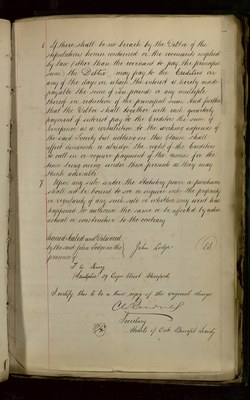 6 If there shall be no breach by the Debtor of the
stipulations herein contained or the covenants implied
by law (other than the covenant to pay the principal
sum) the Debtor may pay to the Creditors on
any of the days on which the interest is hereby made
payable the sum of Ten pounds or any multiple
thereof in reduction of the principal sum. And further
that the Debtor shall together with each quarterly
payment of interest pay to the Creditors the sum of
as a contribution to the working expenses of
the said Society but nothing in this Clause shall
affect diminish or abridge the right of the Creditors
to call in or require payment of the monies for the
time being owing under these presents as they may
think advisable
7 Upon any sale under the Statutory power a purchaser
shall not be bound to see or inquire into the propriety
or regularity of any such sale or whether any event has
happened to authorise the same or be affected by
notice or constructive to the contrary
Signed Sealed and Delivered
by the said John Lodge in the
presence of
John Lodge
Street
I certify this to be a true copy of the original charge
Secretary
Hearts of Oak Benefit Society